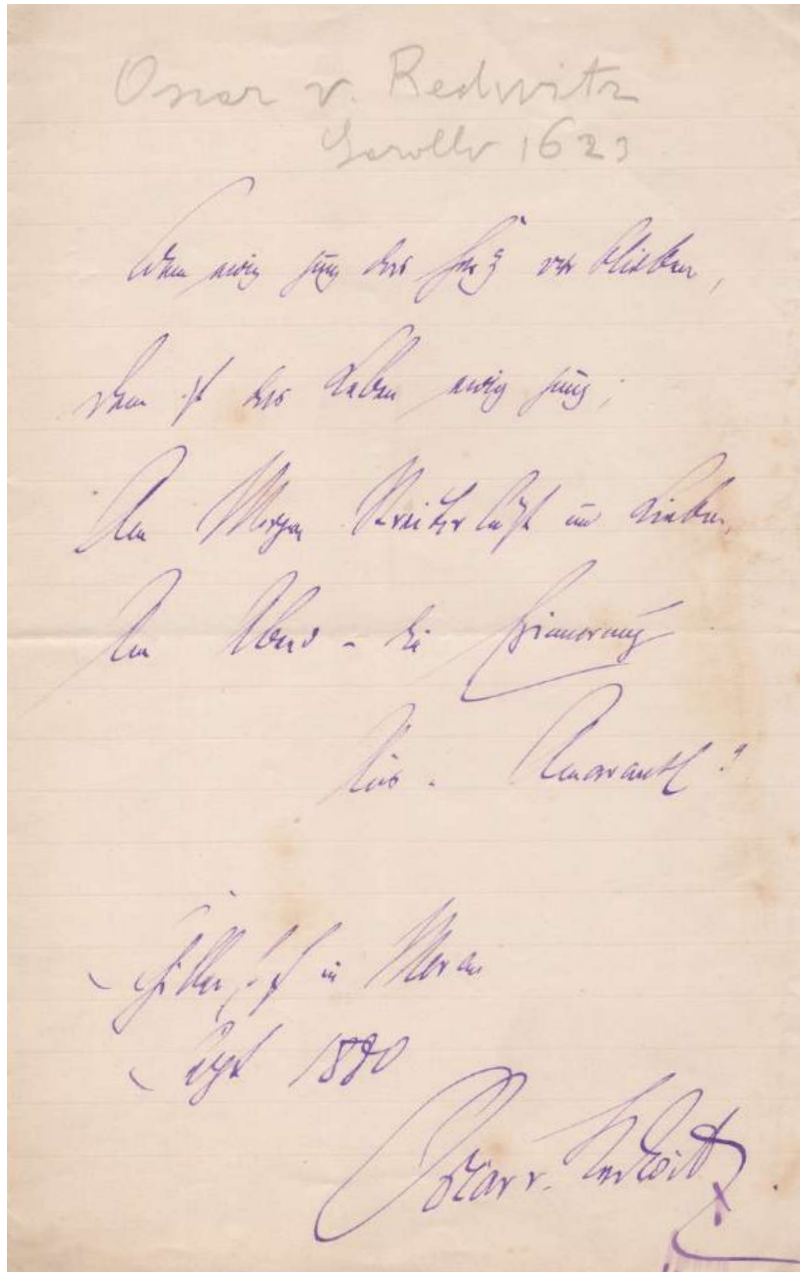 Oscar v. Redwitz
1623
Wem ewig jung das Herz verblieben,
Dem ist das Leben ewig jung;
Am Morgen Streiterlust und Lieben,
Am Abend – die Erinnerung
Aus „Amaranth“
Schillerhof in Meran
Sept 1880
Oskar v. Redwitz